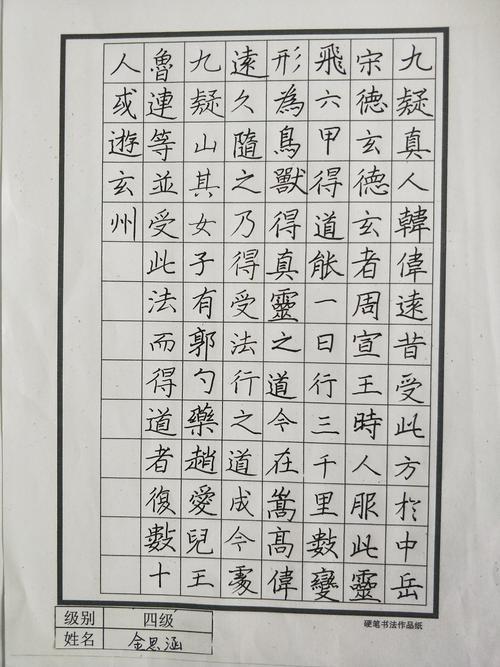 九疑真人韓偉遠昔受此方於中岳
宋德玄德玄者周宣王時人服此靈
飛六甲得道能一日行三千里數變
形為鳥獸得真靈之道今在嵩高偉
遠久隨之乃得受法行之道成今處
九疑山其女子有郭勺藥趙愛兒王
魯連等並受此法而得道者復數十
人或遊玄州
级别 四级
姓名 金思涵
硬笔书法作品纸